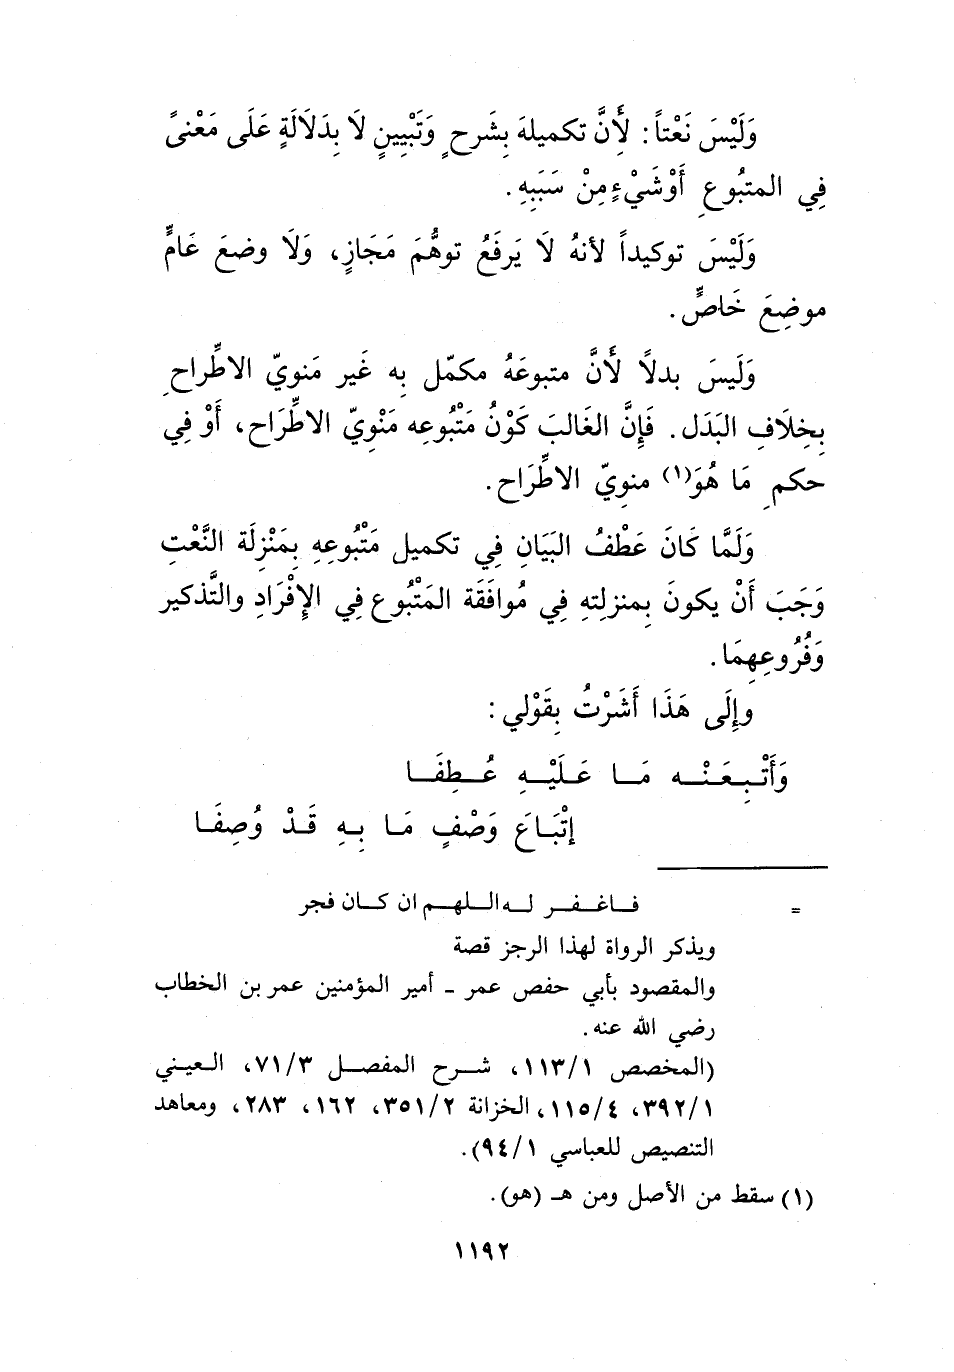 وَلَيْسَ نَعْتاً: لِأَنَّ تكميلهَ بِشَرحٍ وَتَبْيِينٍ لَا بِدَلَالَةٍ عَلَى مَعْنىً
فِي المتبُوعِ أَوْ شَيْءٍ مِنْ سَبَبِهِ.
وَلَيْسَ توكيداً لأنهُ لَا يَرفَعُ توهُّمَ مَجَازٍ، وَلَا وضعَ عَامٍّ
موضِعَ خَاصٍّ.
وَلَيسَ بدلًا لأَنَّ متبوعَهُ مكمّل بِه غَير مَنويّ الاطِّراحِ
بِخِلَافِ البَدَل. فَإِنَّ الغَالبَ كَوْنُ مَتْبُوعِه مَنْوِيّ الاطِّرَاح، أَوْ فِي
حكمِ مَا هُوَ(١) منوِيّ الاطِّرَاح.
وَلَمَّا كَانَ عَطْفُ البَيَانِ فِي تكميل مَتْبُوعِهِ بِمَنْزِلَة النَّعْتِ
وَجَبَ أَنْ يكونَ بِمنزلتِهِ فِي مُوافَقَة المَتْبُوع فِي الإِفْرَادِ والتَّذكير
وَفُرُوعِهِمَا.
وإِلَى هَذَا أَشَرْتُ بِقَوْلي:
وَأَتْبِعَنْه مَا عَلَيْهِ عُطِفَا
إتْبَاعَ وَصْفٍ مَا بِهِ قَدْ وُصِفَا
= فاغفر له اللهم ان كان فجر
ويذكر الرواة لهذا الرجز قصة
والمقصود بأبي حفص عمر - أمير المؤمنين عمر بن الخطاب
رضي الله عنه.
(المخصص ١/١١٣، شرح المفصل ٣/٧١، العيني
١/٣٩٢، ٤/١١٥، الخزانة ٢/٣٥١، ١٦٢، ٢٨٣، ومعاهد
التنصيص للعباسي ١/٩٤).
(١) سقط من الأصل ومن هـ (هو).
١١٩٢